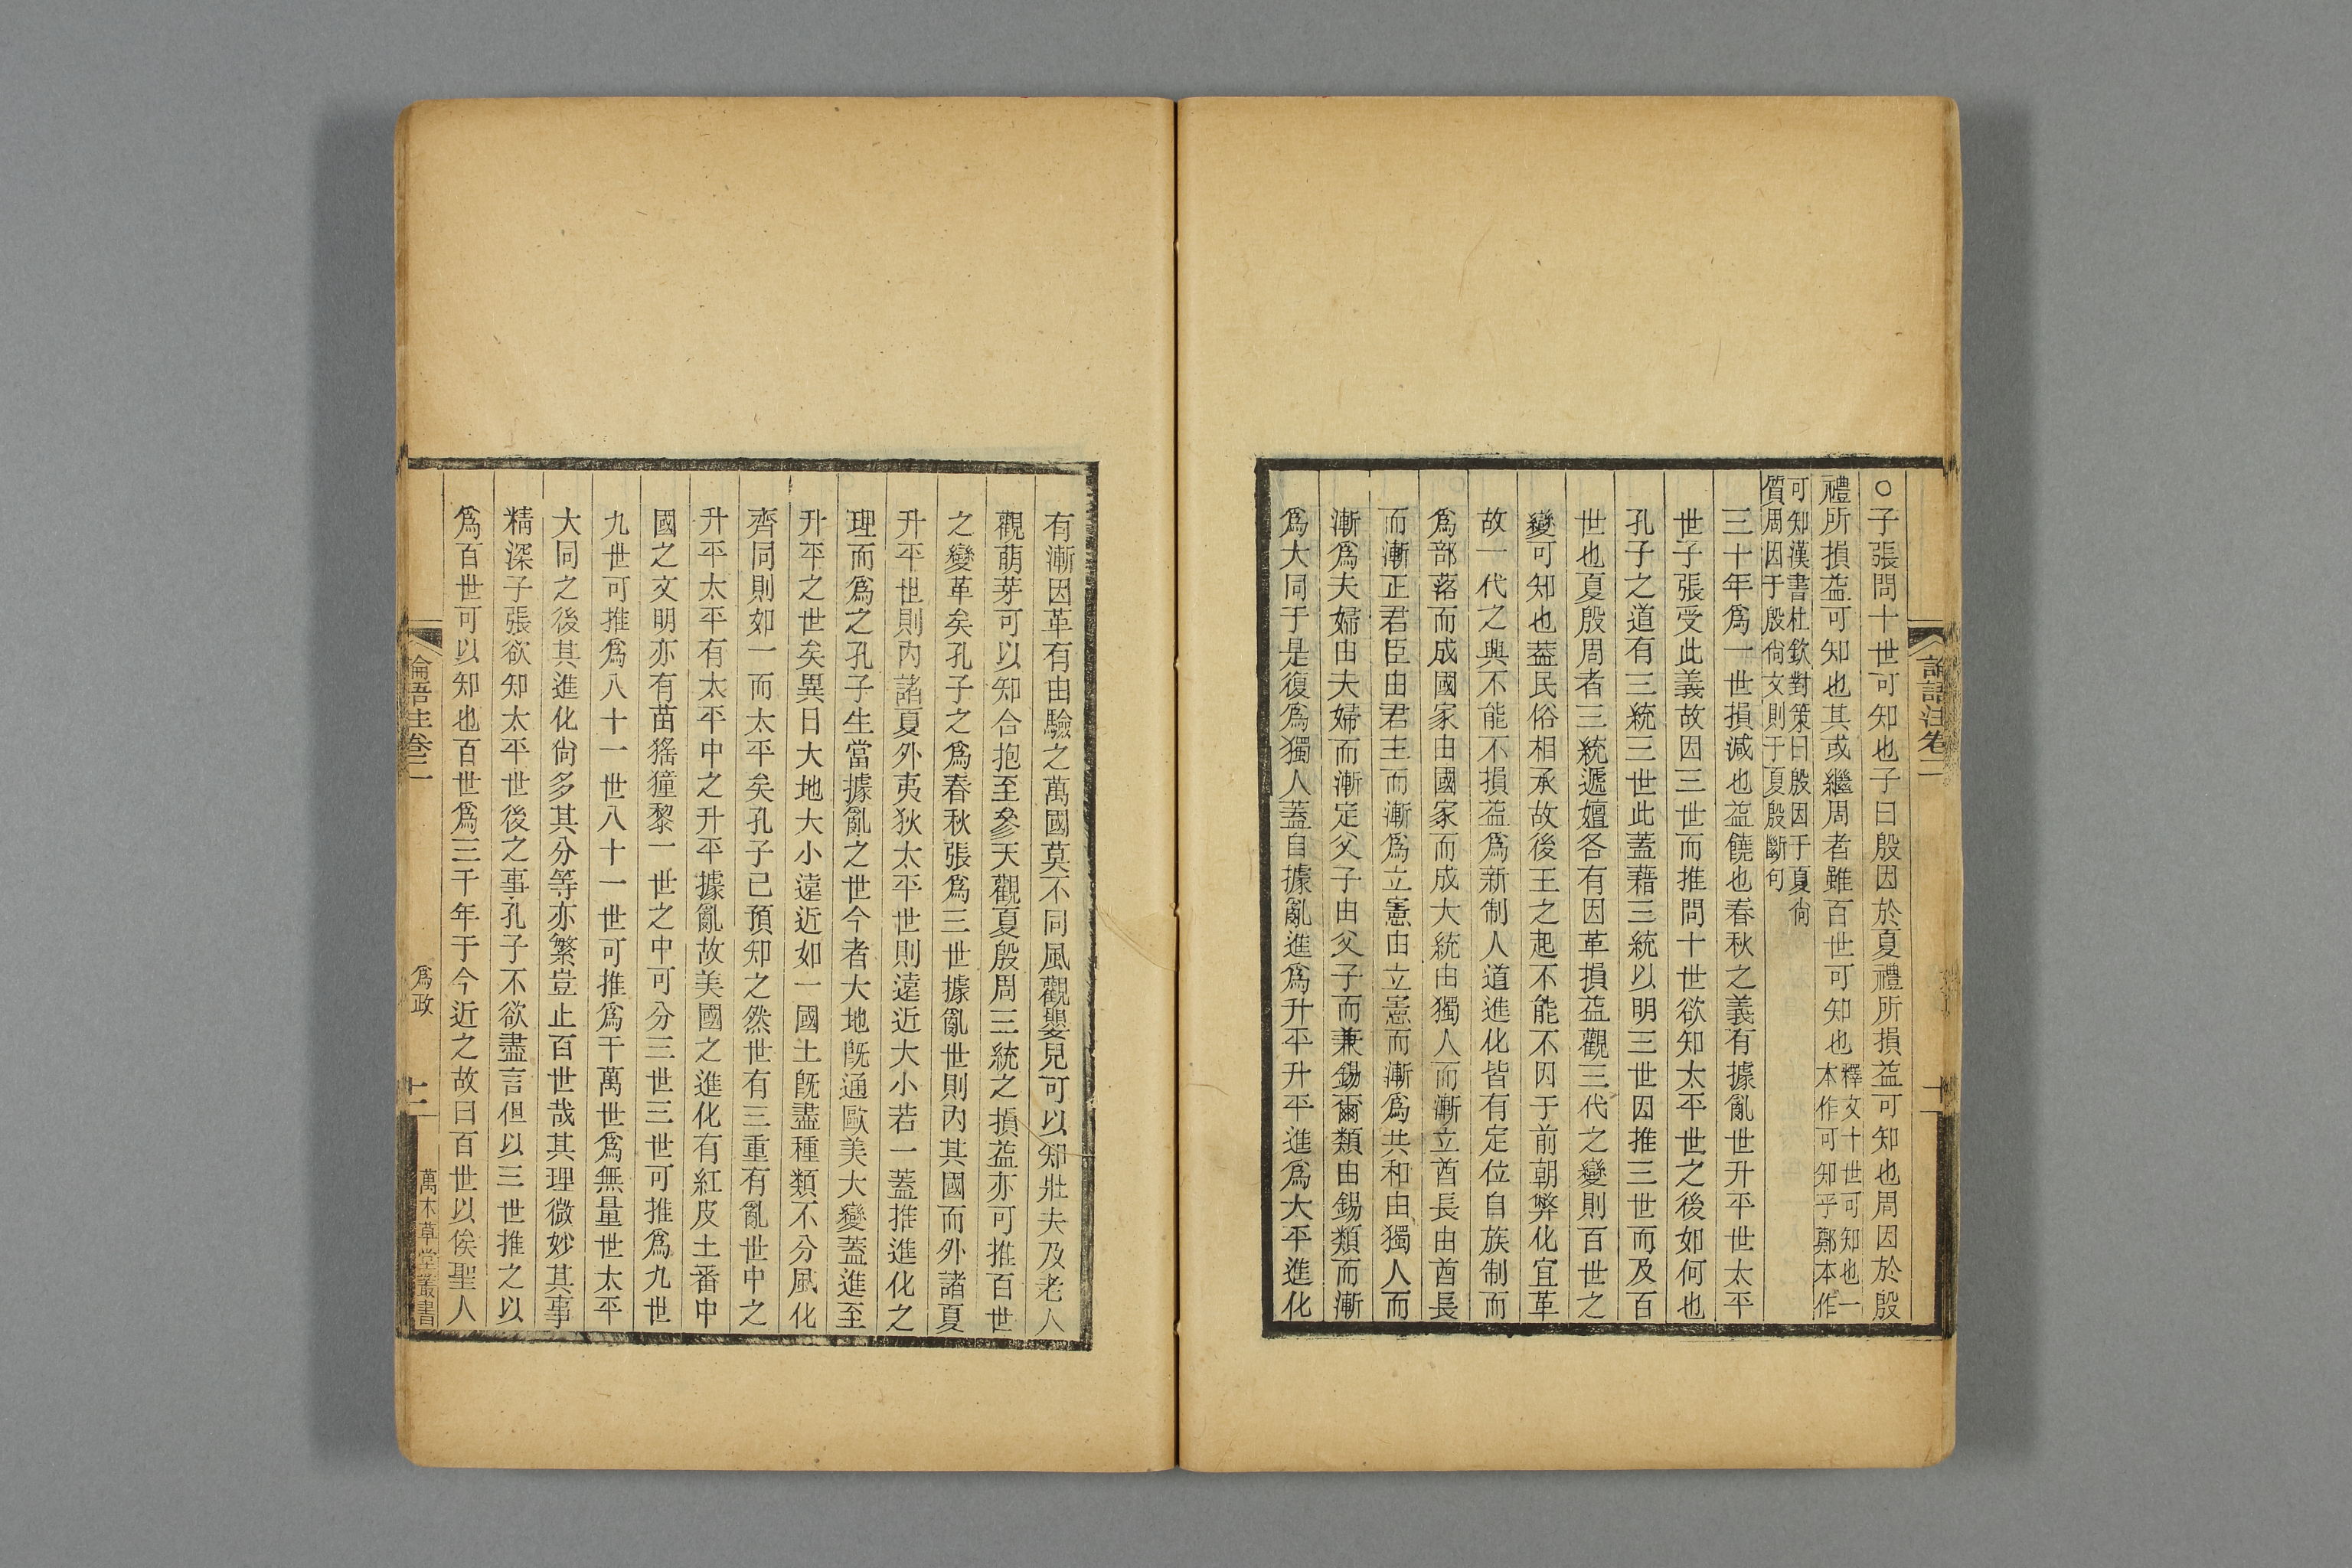 論語注卷二
○子張問十世可知也子曰殷因於夏禮所損益可知也周因於殷
禮所損益可知也其或繼周者雖百世可知也釋文十世可知也一
本作可知乎鄭本作
可知漢書杜欽對策曰殷因于夏尙
質周因于殷尙文則于夏殷斷句
三十年爲一世損減也益饒也春秋之義有據亂世升平世太平
世子張受此義故因三世而推問十世欲知太平世之後如何也
孔子之道有三統三世此蓋藉三統以明三世因推三世而及百
世也夏殷周者三統遞嬗各有因革損益觀三代之變則百世之
變可知也蓋民俗相承故後王之起不能不因于前朝弊化宜革
故一代之興不能不損益爲新制人道進化皆有定位自族制而
爲部落而成國家由國家而成大統由獨人而漸立酋長由酋長
而漸正君臣由君主而漸爲立憲由立憲而漸爲共和由獨人而
漸爲夫婦由夫婦而漸定父子由父子而兼錫爾類由錫類而漸
爲大同于是復爲獨人蓋自據亂進爲升平升平進爲大平進化
有漸因革有由驗之萬國莫不同風觀嬰兒可以知壯夫及老人
觀萌芽可以知合抱至參天觀夏殷周三統之損益亦可推百世
之變革矣孔子之爲春秋張爲三世據亂世則內其國而外諸夏
升平世則內諸夏外夷狄太平世則遠近大小若一蓋推進化之
理而爲之孔子生當據亂之世今者大地旣通歐美大變蓋進至
升平之世矣異日大地大小遠近如一國土旣盡種類不分風化
齊同則如一而太平矣孔子已預知之然世有三重有亂世中之
升平太平有太平中之升平據亂故美國之進化有紅皮土番中
國之文明亦有苗猺獞黎一世之中可分三世三世可推爲九世
九世可推爲八十一世八十一世可推爲千萬世爲無量世太平
大同之後其進化尙多其分等亦繁豈止百世哉其理微妙其事
精深子張欲知太平世後之事孔子不欲盡言但以三世推之以
爲百世可以知也百世爲三千年于今近之故曰百世以俟聖人
論語注卷二
爲政
十二
萬木草堂叢書